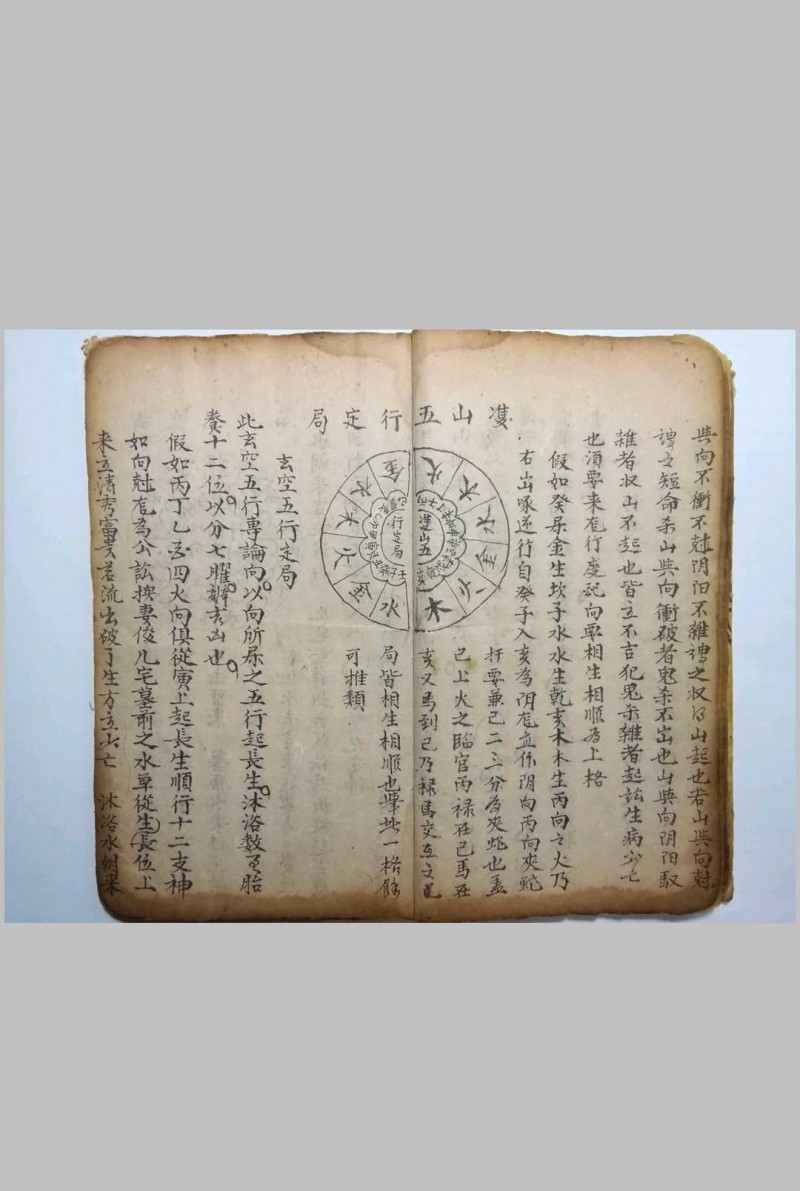 與向不衝不尅阴阳不雜謂之収得山起也若山與向尅
謂之短命杀山與向衝破者鬼杀不出也山與向阴阳駁
雜者収山不起也皆主不吉犯鬼杀雜者起訟生病少亡
也湏要来龙行度記向要相生相順為上格
假如癸尽金生坎子水水生乾亥木木生丙向之火乃
右出啄逆行自癸子入亥為阴龙立作阴向丙向夾蛇
扦要兼己二三分為夾蛇也盖
己上火之臨官丙禄在己馬在
亥又馬到己乃禄馬交互之
雙山五行定局
雙山五
行定局
火
木
水
金
火
木
金
水
木
火
金
水
局皆相生相順也舉此一格餘
可推類
玄空五行定局
此玄空五行專論向以向所屬之五行起長生沐浴数至胎
養十二位以分七曜辨吉凶也
假如丙丁乙酉四火向俱從寅上起長生順行十二支神
如向尅龙為公訟換妻俊儿宅墓前之水单從生長位上
来立清秀富貴若流出破了生方主少亡 沐浴水朝来